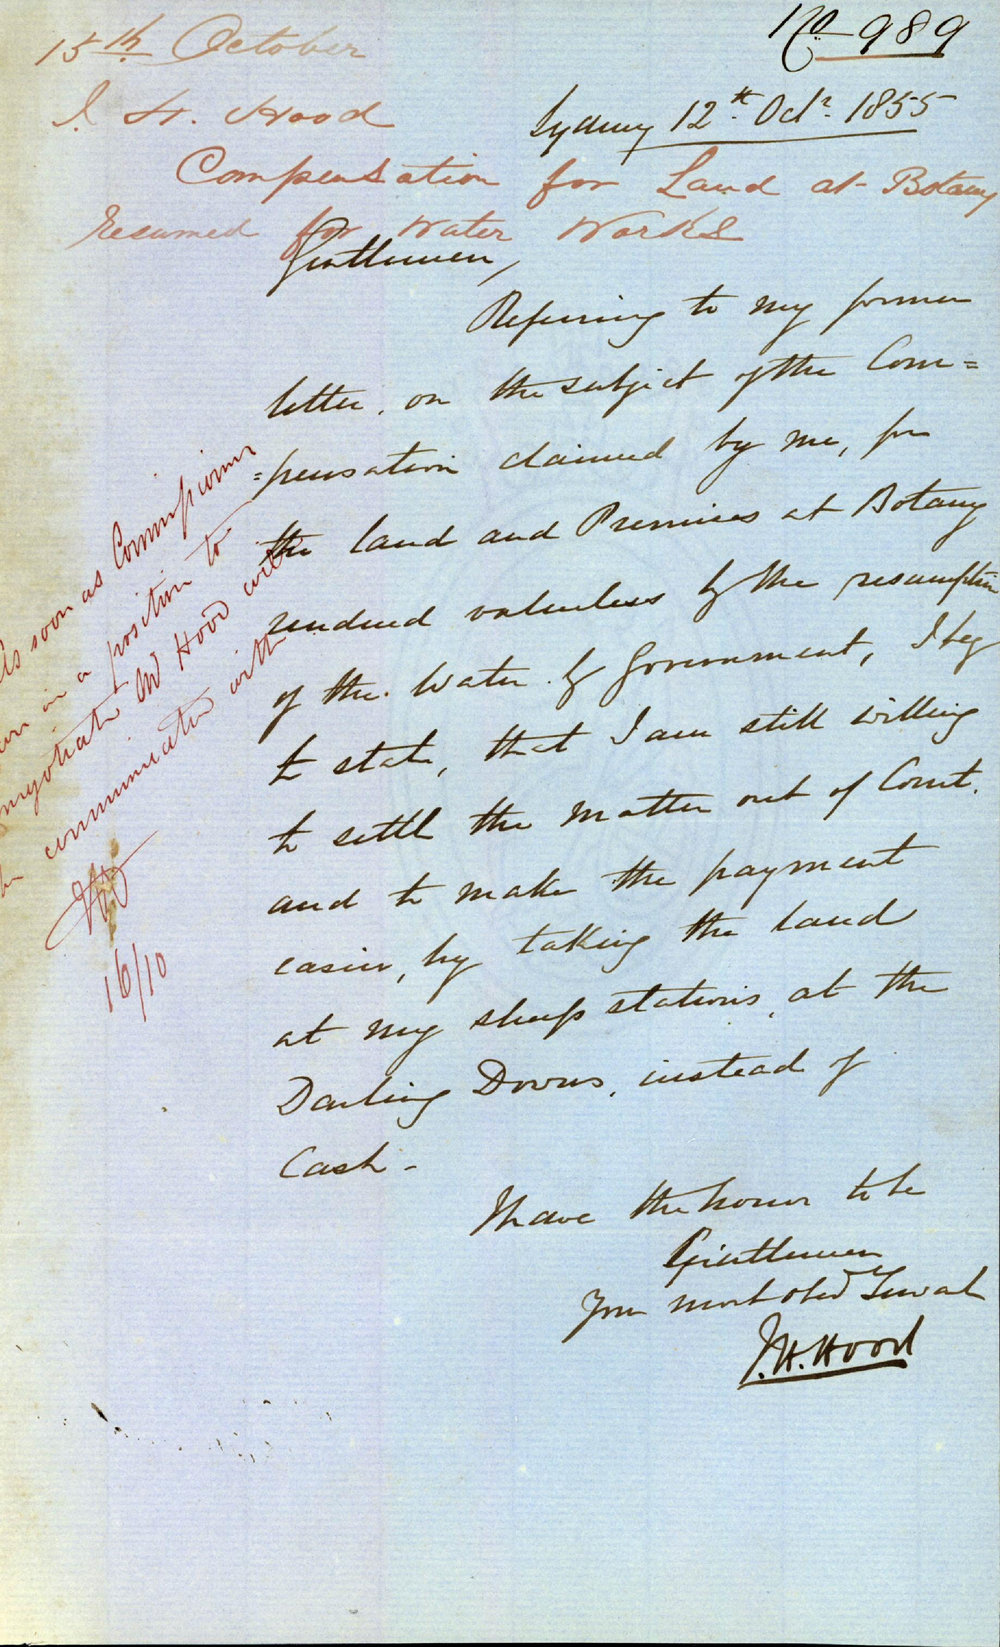 No 989
15th October
J. H. Hood
Sydney 12th Octr. 1855
Compensation for Land at Botany
Resumed for Water Works
Gentlemen,
Referring to my former
letter, on the subject of the Com=
=pensation claimed by me, for
the land and Premises at Botany
rendered valueless by the resumption
of the Water by Government, I beg
to state, that I am still willing
to settle the matter out of Court.
and to make the payment
easier, by taking the land
at my sheep stations, at the
Darling Downs, instead of
Cash -
I have the honor to be
Gentlemen
Your most obed Servant
J. H. Hood
As soon as Commissioners
are in a position to
negotiate Mr Hood will
be communicated with
16/10